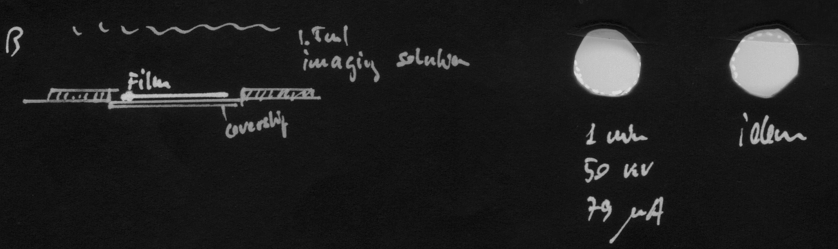 B
1. Test
imaging solution
Film
coverslip
1 min
50 kV
79 μA
idem